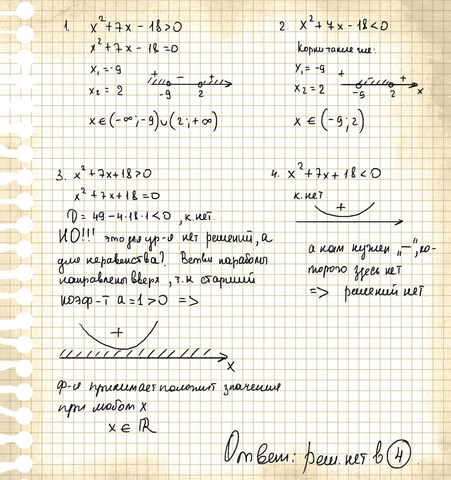 1. x² + 7x - 18 > 0
x² + 7x - 18 = 0
x₁ = -9
x₂ = 2
+ - +
-9 2
x ∈ (-∞; -9) ∪ (2; +∞)
2. x² + 7x - 18 < 0
Корни такие же:
x₁ = -9
x₂ = 2
+ - +
-9 2 x
x ∈ (-9; 2)
3. x² + 7x + 18 > 0
x² + 7x + 18 = 0
D = 49 - 4·18·1 < 0, к. нет.
НО!!! это для ур-я нет решений, а
для неравенства? Ветви параболы
направлены вверх, т.к старший
коэф-т a = 1 > 0 =>
+
x
ф-я принимает положит значения
при любом x
x ∈ ℝ
4. x² + 7x + 18 < 0
к. нет
+
а нам нужен „-", ко-
торого здесь нет
=> решений нет
Ответ: реш. нет в 4